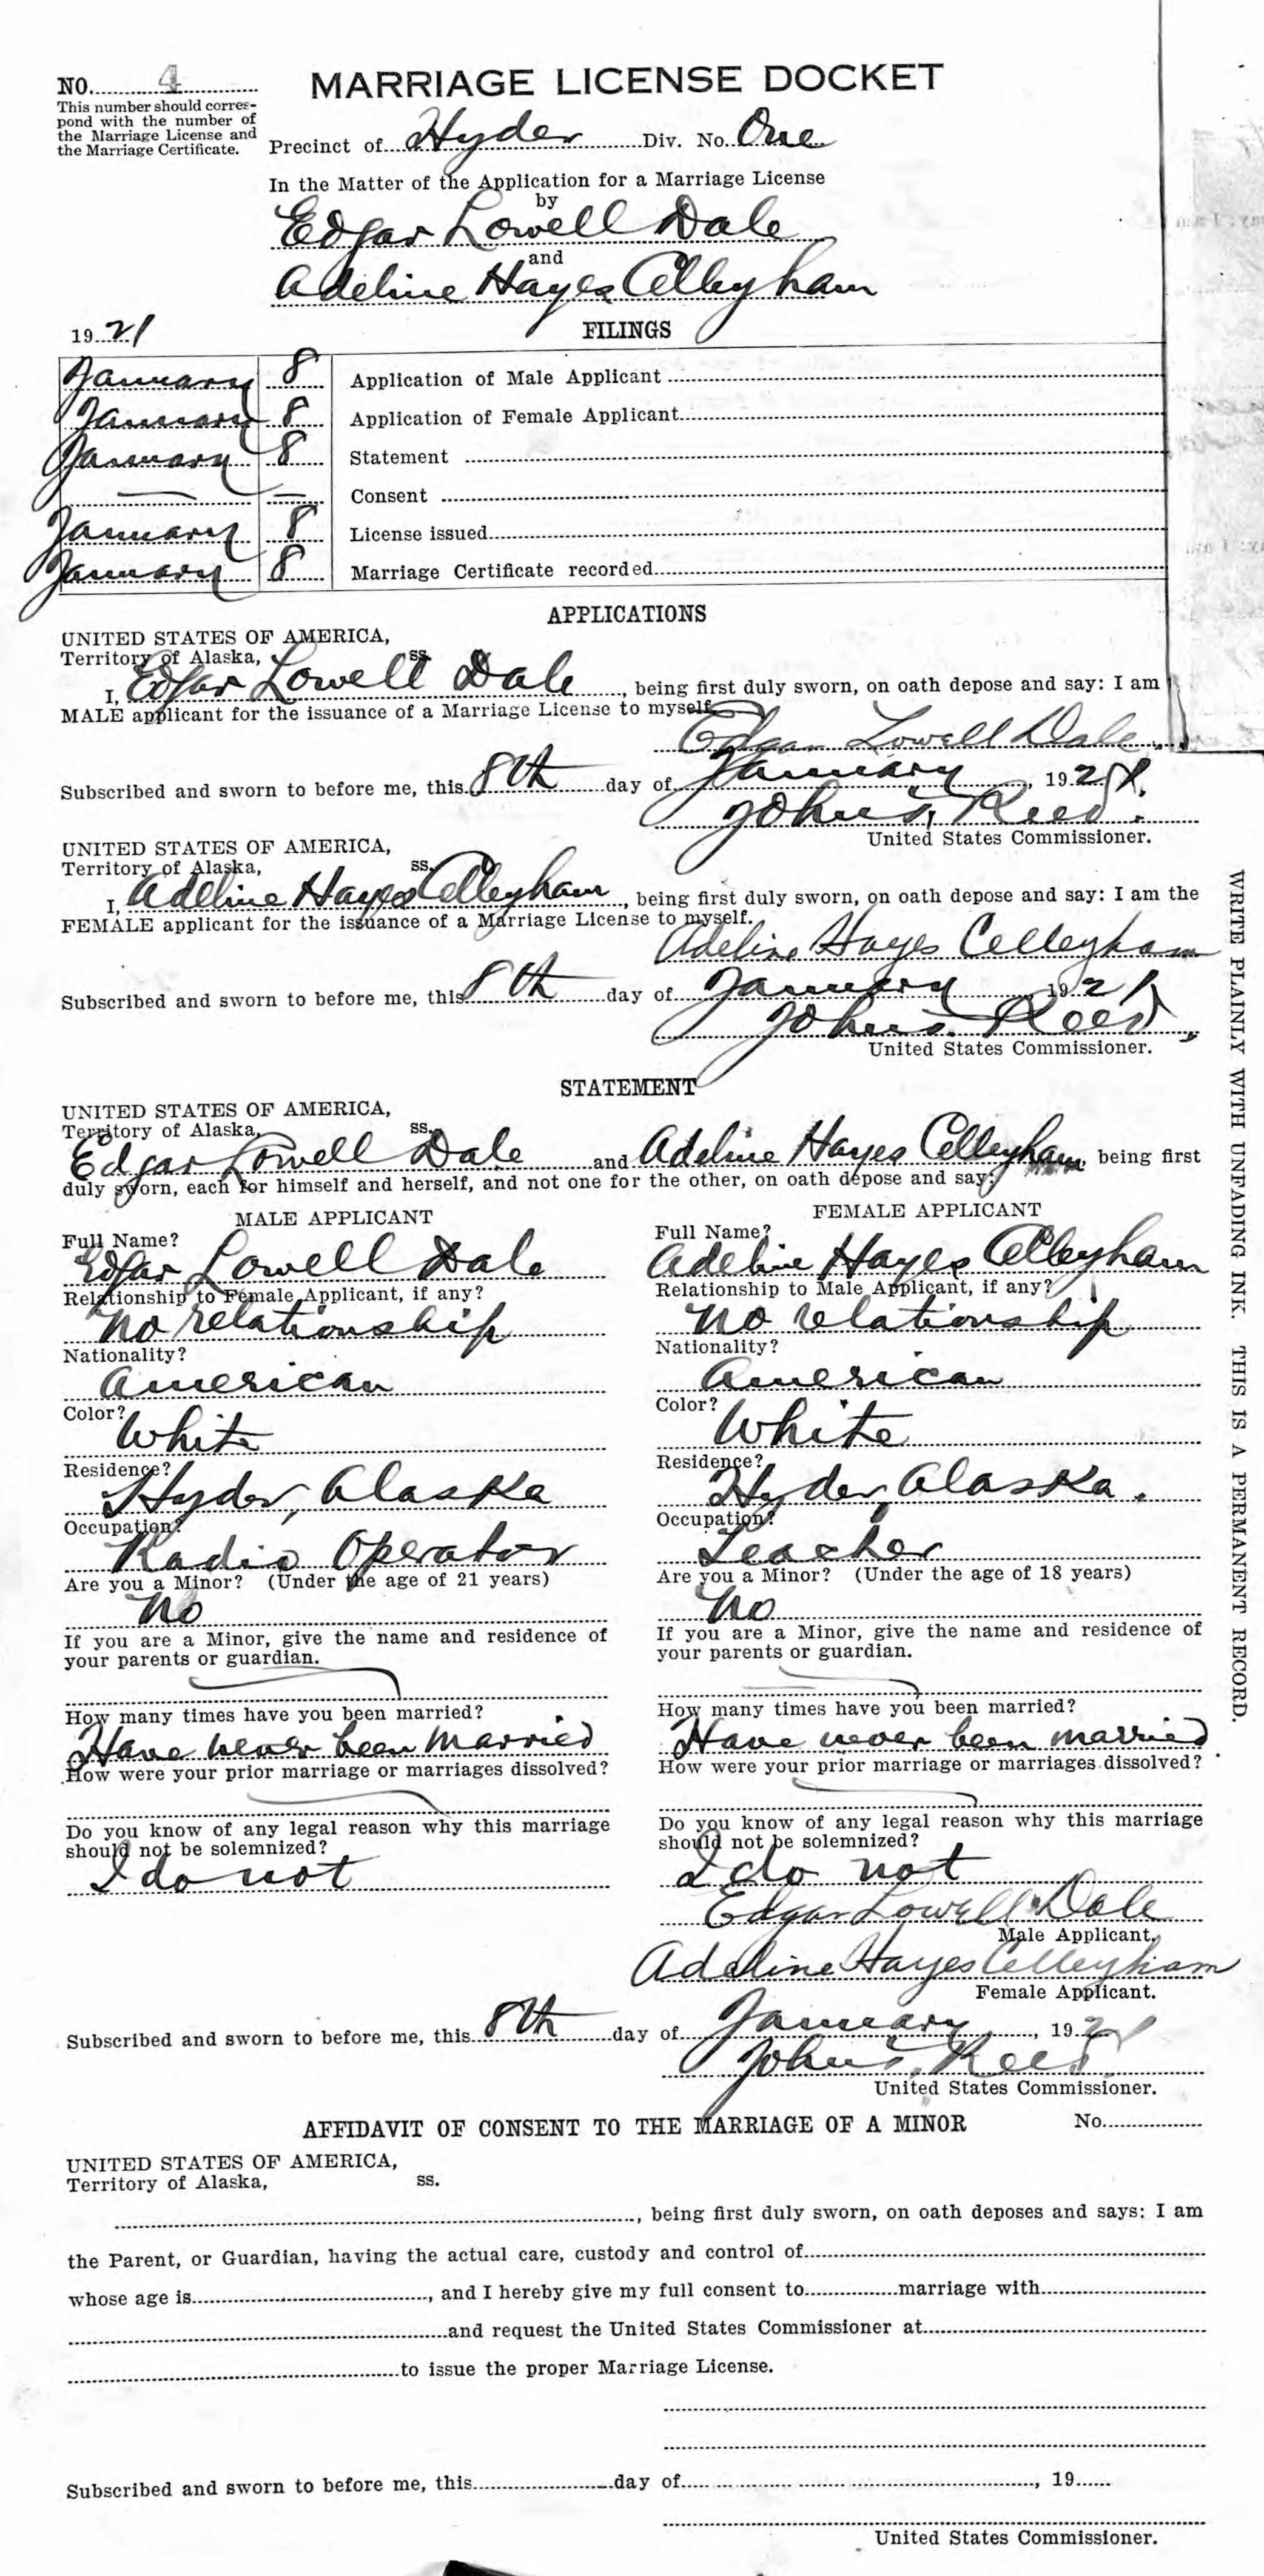 NO. 4
MARRIAGE LICENSE DOCKET
This number should corres-
pond with the number of
the Marriage License and
the Marriage Certificate.
Precinct of Hyder Div. No. One
In the Matter of the Application for a Marriage License
by
Edgar Lowell Dale
and
Adeline Hayes Celleyham
1921
FILINGS
January 8 Application of Male Applicant
January 8 Application of Female Applicant
January 8 Statement
— — Consent
January 8 License issued
January 8 Marriage Certificate recorded
APPLICATIONS
UNITED STATES OF AMERICA,
Territory of Alaska, ss.
I, Edgar Lowell Dale, being first duly sworn, on oath depose and say: I am
MALE applicant for the issuance of a Marriage License to myself
Edgar Lowell Dale.
Subscribed and sworn to before me, this 8th day of January, 1921.
John S. Reed.
United States Commissioner.
UNITED STATES OF AMERICA,
Territory of Alaska, ss.
I, Adeline Hayes Celleyham, being first duly sworn, on oath depose and say: I am the
FEMALE applicant for the issuance of a Marriage License to myself.
Adeline Hayes Celleyham
Subscribed and sworn to before me, this 8th day of January 1921
John S. Reed,
United States Commissioner.
STATEMENT
UNITED STATES OF AMERICA,
Territory of Alaska, ss.
Edgar Lowell Dale and Adeline Hayes Celleyham being first
duly sworn, each for himself and herself, and not one for the other, on oath depose and say:
MALE APPLICANT
Full Name?
Edgar Lowell Dale
Relationship to Female Applicant, if any?
No relationship
Nationality?
American
Color?
White
Residence?
Hyder, Alaska
Occupation?
Radio Operator
Are you a Minor? (Under the age of 21 years)
No
If you are a Minor, give the name and residence of
your parents or guardian.
How many times have you been married?
Have never been married
How were your prior marriage or marriages dissolved?
Do you know of any legal reason why this marriage
should not be solemnized?
I do not
FEMALE APPLICANT
Full Name?
Adeline Hayes Celleyham
Relationship to Male Applicant, if any?
No relationship
Nationality?
American
Color?
White
Residence?
Hyder, Alaska.
Occupation?
Teacher
Are you a Minor? (Under the age of 18 years)
No
If you are a Minor, give the name and residence of
your parents or guardian.
How many times have you been married?
Have never been married
How were your prior marriage or marriages dissolved?
Do you know of any legal reason why this marriage
should not be solemnized?
I do not
Edgar Lowell Dale
Male Applicant.
Adeline Hayes Celleyham
Female Applicant.
Subscribed and sworn to before me, this 8th day of January, 1921
John S. Reed
United States Commissioner.
AFFIDAVIT OF CONSENT TO THE MARRIAGE OF A MINOR No.
UNITED STATES OF AMERICA,
Territory of Alaska, ss.
, being first duly sworn, on oath deposes and says: I am
the Parent, or Guardian, having the actual care, custody and control of
whose age is , and I hereby give my full consent to marriage with
and request the United States Commissioner at
to issue the proper Marriage License.
Subscribed and sworn to before me, this day of , 19
United States Commissioner.
WRITE PLAINLY WITH UNFADING INK. THIS IS A PERMANENT RECORD.